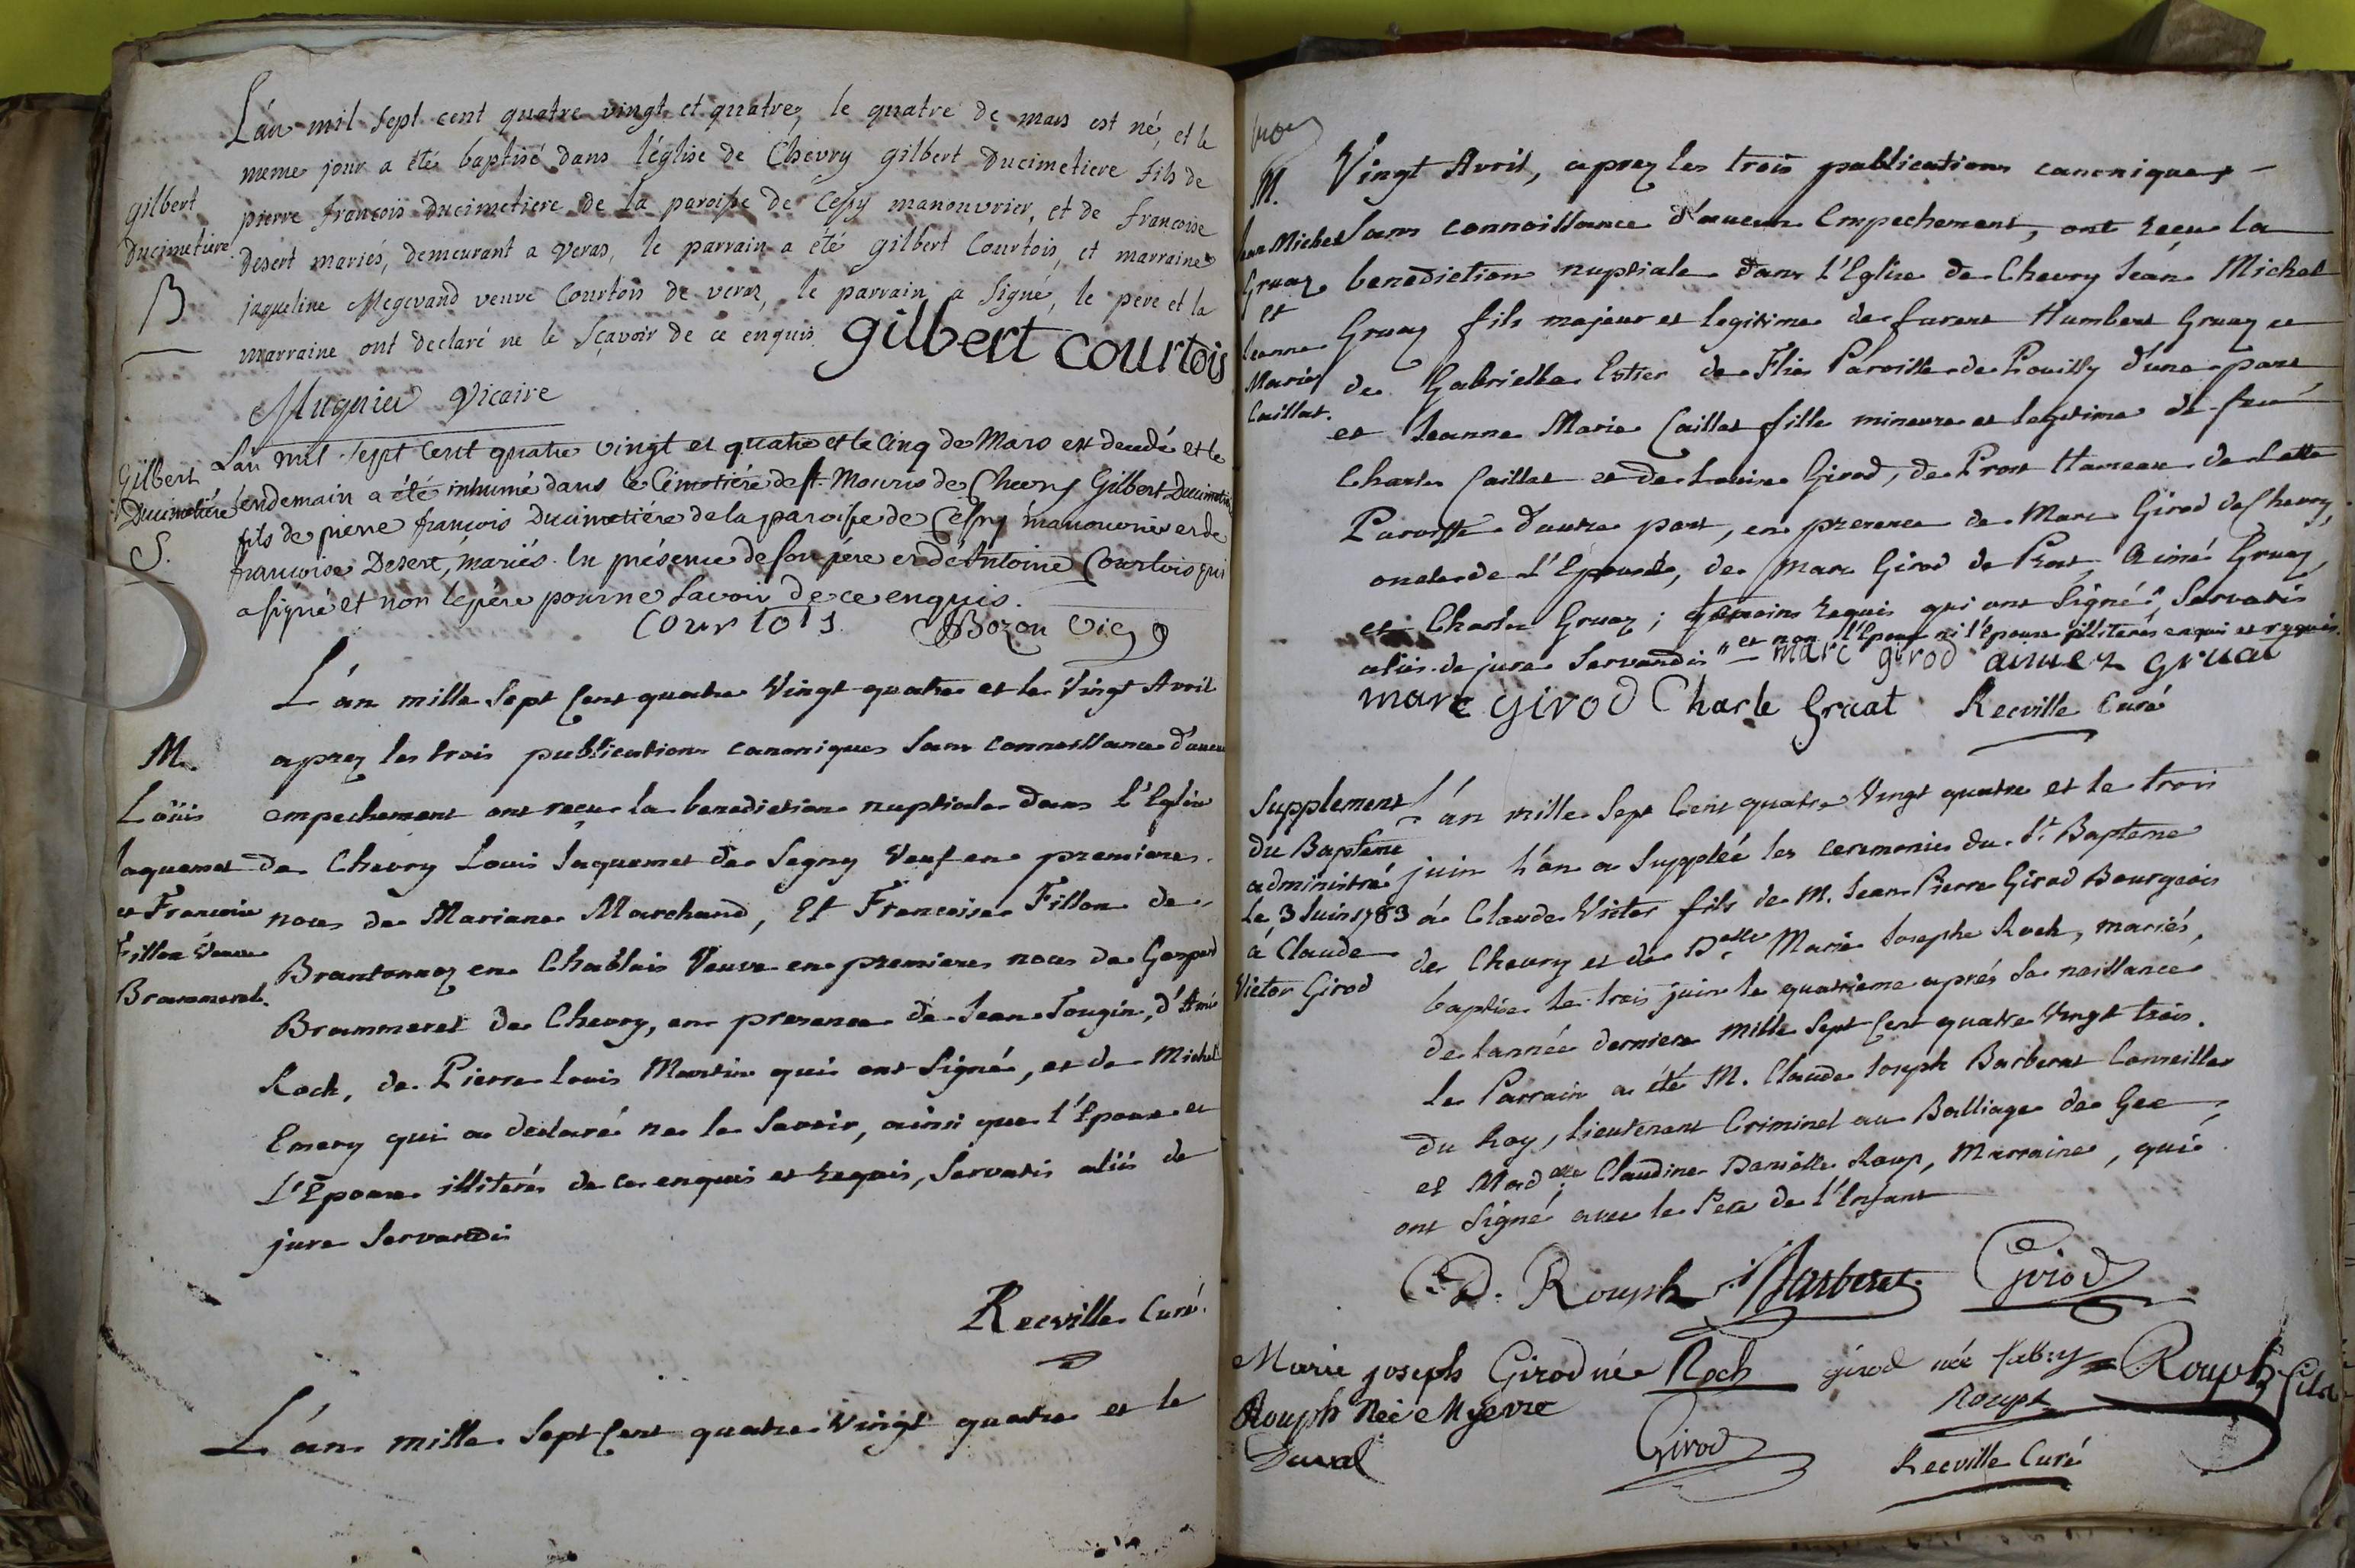 L'an mil sept cent quatre vingt et quatre, le quatre de mars est né, et le
meme jour a été baptisé dans l'église de Chevry gilbert Ducimetiere fils de
gilbert
Ducimetiere.
B
pierre françois Ducimetiere de la paroisse de Cessy manouvrier, et de françoise
Desert mariés, demeurant a Veraz, le parrain a été gilbert Courtois, et marraine
jaqueline Megevand veuve Courtois de veraz, le parrain a signé, le pere et la
marraine ont declaré ne le sçavoir de ce enquis.
gilbert courtois
Mugnier Vicaire
Gilbert
Ducimetiére
S.
L'an mil sept cent quatre vingt et quatre et le cinq de Mars est decedé et le
lendemain a été inhumé dans le Cimetiére de st. Mouris de Chevry Gilbert Ducimetiére
fils de pierre françois Ducimetiére de la paroisse de Cessy manouvrier et de
françoise Desert, mariés. En présence de son pére et de Antoine Courtois qui
a signé et non le pére pour ne savoir de ce enquis.
Courtois Bozon vic
L'an mille Sept Cent quatre Vingt quatre et le Vingt Avril
M.
Loüis
Jaquemet
et Francoise
Fillon Veuve
Brammeret.
aprez les trois publications canoniques sans connoissance d'aucun
empechement ont reçu la benediction nuptiale dans l'Eglise
de Chevry Louis Jaquemet de Segny Veuf en premieres
noces de Mariane Marchand, Et Francoise Fillon de
Brantonnaz en Chablais Veuve en premieres noces de Gaspard
Brammeret de Chevry, en presence de Jean Tougin, d'Amé
Roch, de Pierre louis Martin qui ont signé, et de Michel
Emery qui a declaré ne le savoir, ainsi que l'Epoux et
l'Epouse illiterés de ce enquis et requis, servatis aliis de
jure servandis
Recville Curé.
L'an mille Sept Cent quatre Vingt quatre et le
M.
Jean Michel
Gruaz
et
Jeanne
Marie
Caillat.
Vingt Avril, aprez les trois publications canoniques
sans connoissance d'aucun Empechement, ont reçu la
benediction nuptiale dans l'Eglise de Chevry Jean Michel
Gruaz fils majeur et legitime de furent Humbert Gruaz et
de Gabrielle Estier de Flie Paroisse de Pouilly d'une part
et Jeanne Marie Caillat fille mineure et legitime de feu
Charle Caillat et de Louise Girod, de Prost Hameau de Cette
Paroisse d'autre part, en presence de Marc Girod de Chevry,
oncle de l'Epouse, de Marc Girod de Prost, Aimé Gruaz
et Charles Gruaz; temoins requis qui ont signé", servatis
aliis de jure servandis " et non l'Epoux ni l'epouse illiterés enquis et requis.
marc girod aimez gruat
marc girod Charle Gruat Recville Curé
Supplement
du Baptême
administré
le 3 Juin 1783
à Claude
Victor Girod
L'an mille Sept Cent quatre Vingt quatre et le trois
juin l'on a suppléé les ceremonies du St. Baptême
à Claude Victor fils de M. Jean Pierre Girod Bourgeois
de Chevry et de Delle Marie Josephe Roch, mariés,
baptisé le trois juin le quatrieme aprés sa naissance
de l'année derniere mille Sept Cent quatre Vingt trois.
le Parrain a été M. Claude Joseph Barberat Conseiller
du Roy, lieutenant Criminel au Balliage de Gex,
et Madelle Claudine Danielle Roup, Marraine, qui
ont signé avec le Pere de l'Enfant
C. D. Rouph Barberat Girod
Marie joseph Girod née Roch girod née fabry Rouph fils
Rouph Née Myevre Rouph
Duval Girod Recville Curé